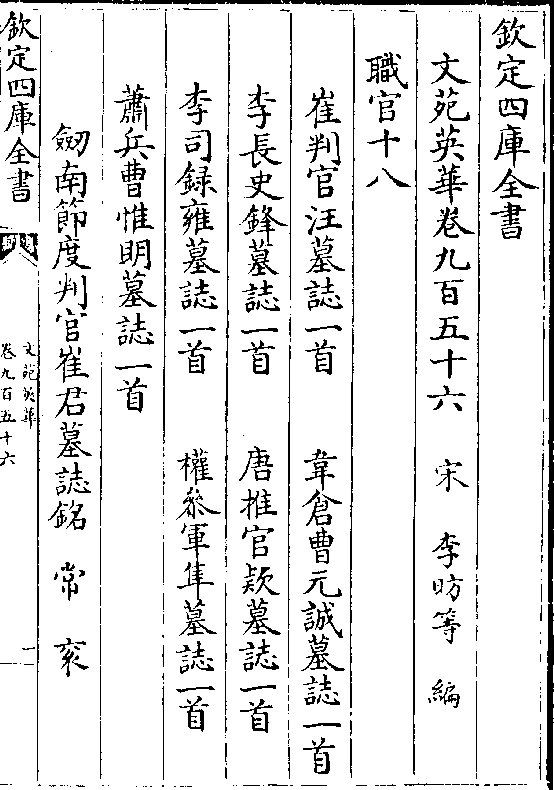 欽定四庫全書
文苑英華卷九百五十六　宋　李昉等　編
職官十八
崔判官汪墓誌一首　韋倉曹元誠墓誌一首
李長史鋒墓誌一首　唐推官款墓誌一首
李司録雍墓誌一首　權叅軍隼墓誌一首
蕭兵曹惟明墓誌一首
劒南節度判官崔君墓誌銘　常　袞
欽定四庫全書
文苑英華
卷九百五十六
一